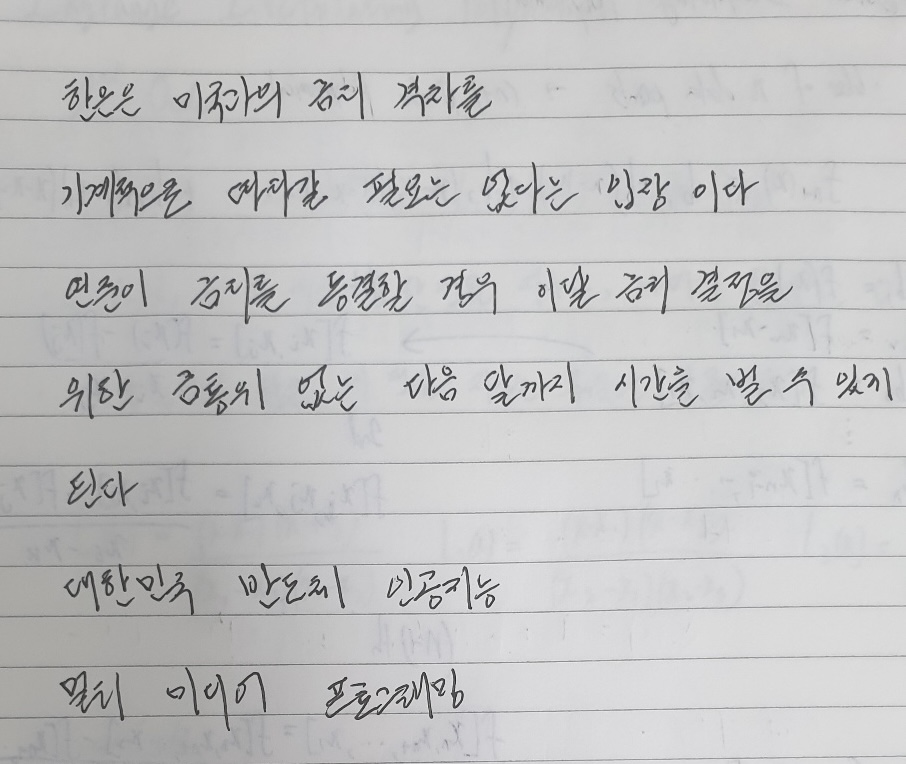 한은은 미국과의 금리 격차를
기계적으로 따라갈 필요는 없다는 입장 이다
연준이 금리를 동결할 경우 이달 금리 결정을
위한 금통위 없는 다음 달까지 시간을 벌 수 있게
된다
대한민국 반도체 인공지능
멀티 미디어 프로그래밍